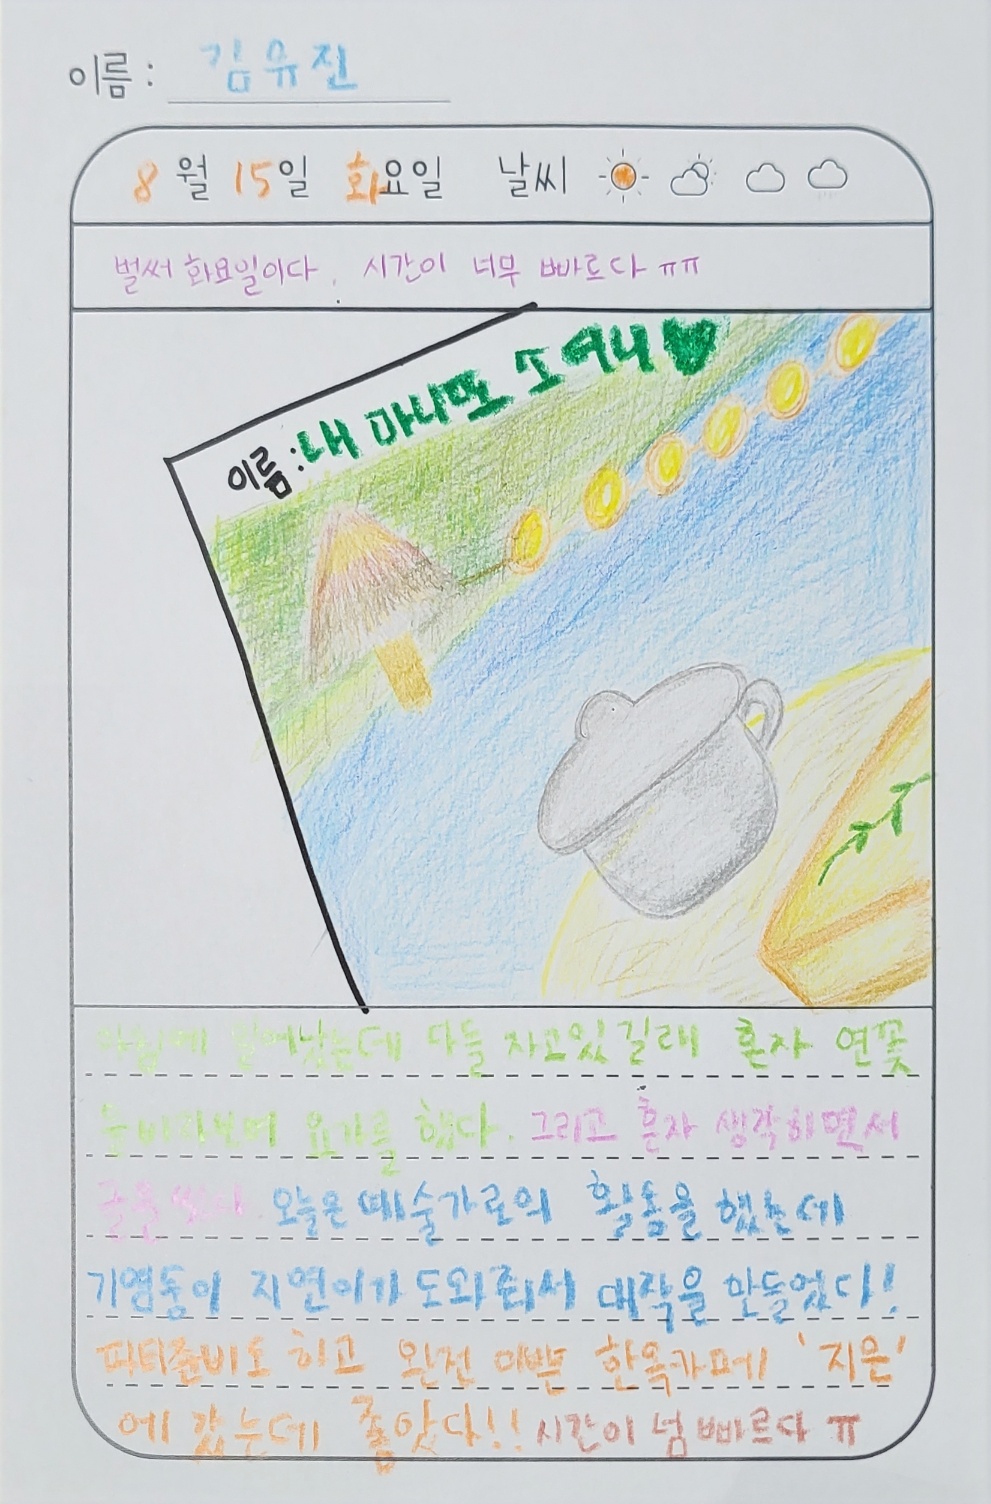 이름: 김유진
8월 15일 화요일 날씨
벌써 화요일이다. 시간이 너무 빠르다 ㅠㅠ
이름: 내 마니또 조여니♥
아침에 일어났는데 다들 자고있길래 혼자 연꽃
요가를 했다. 그리고 혼자 생각하면서
글을 썼다. 오늘은 예술가로의 활동을 했는데
기염둥이 지연이가 도와줘서 대작을 만들었다!
파티준비도 하고 완전 이쁜 한옥카페 '지은'
에 갔는데 좋았다!! 시간이 넘 빠르다 ㅠ